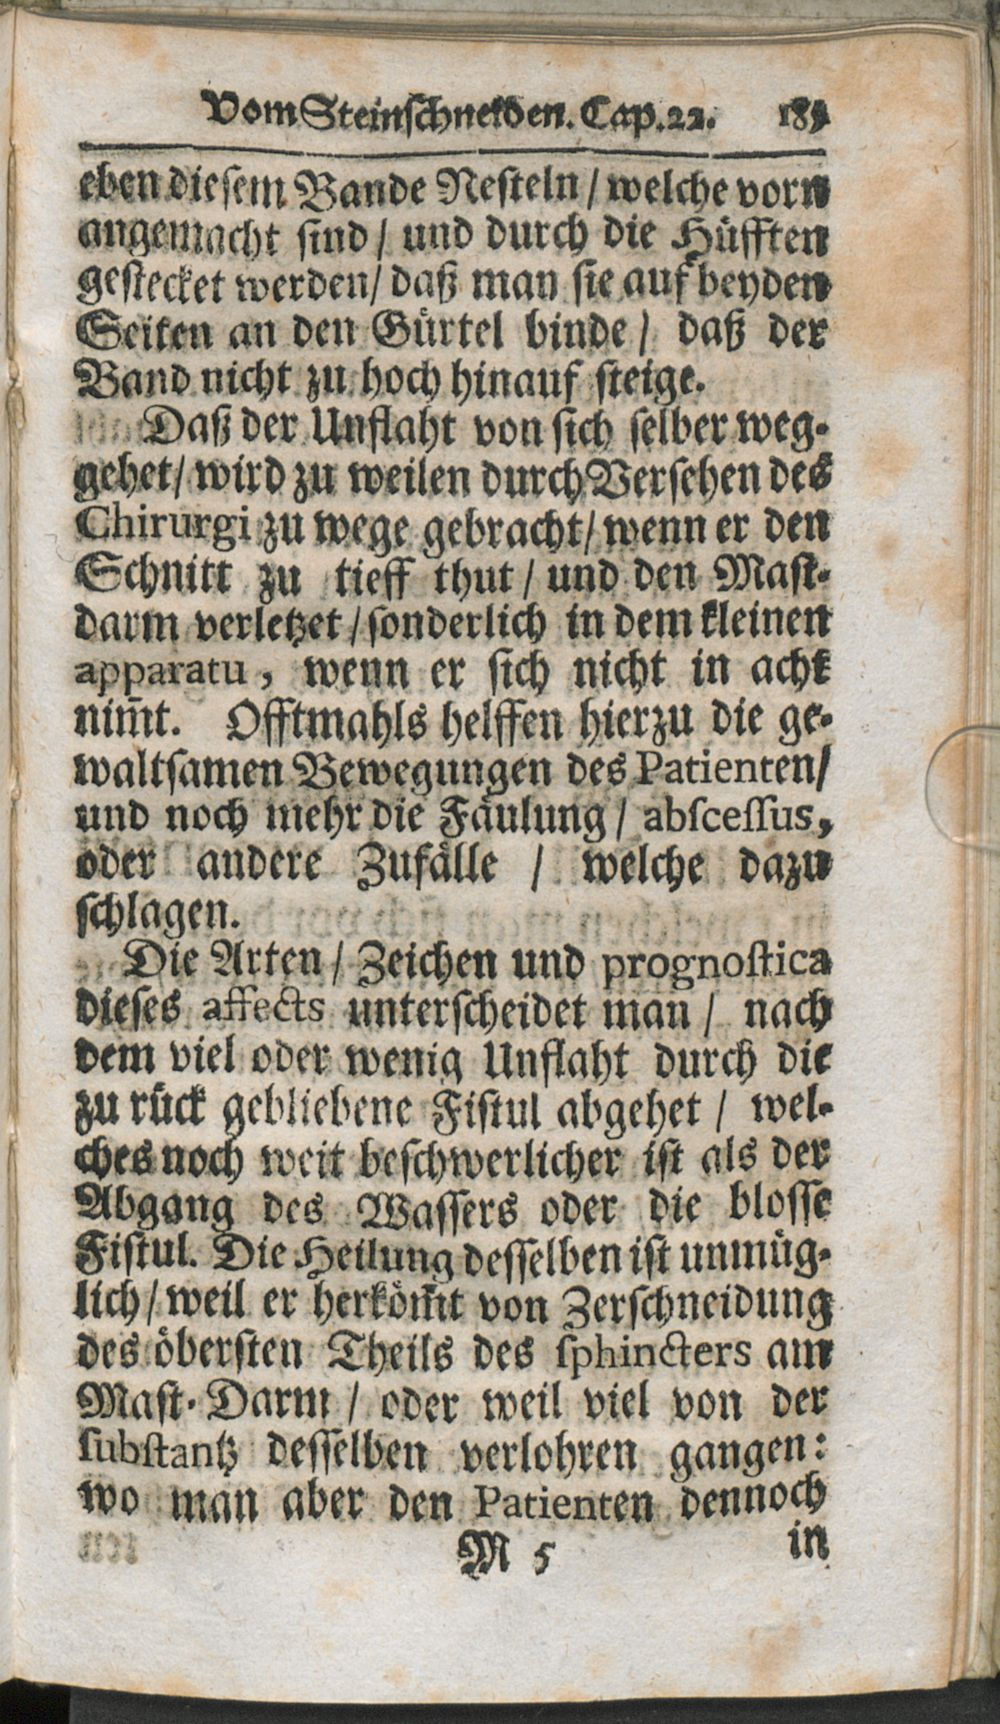 Vom Steinschneiden. Cap. 22. 185
eben diesem Bande Nesteln / welche vorn
angemacht sind / und durch die Hüfften
gestecket werden / daß man sie auf beyden
Seiten an den Gürtel binde / daß der
Band nicht zu hoch hinauf steige.
Daß der Unflaht von sich selber weg-
gehet / wird zu weilen durch Versehen des
Chirurgi zu wege gebracht / wenn er den
Schnitt zu tieff thut / und den Mast-
darm verletzet / sonderlich in dem kleinen
apparatu, wenn er sich nicht in acht
nim̃t. Offtmahls helffen hierzu die ge-
waltsamen Bewegungen des Patienten /
und noch mehr die Fäulung / abscessus,
oder andere Zufälle / welche dazu
schlagen.
Die Arten / Zeichen und prognostica
dieses affects unterscheidet man / nach
dem viel oder wenig Unflaht durch die
zu rück gebliebene Fistul abgehet / wel-
ches noch weit beschwerlicher ist als der
Abgang des Wassers oder die blosse
Fistul. Die Heilung desselben ist unmüg-
lich / weil er herköm̃t von Zerschneidung
des öbersten Theils des sphincters am
Mast-Darm / oder weil viel von der
substantz desselben verlohren gangen:
wo man aber den Patienten dennoch
M 5 in